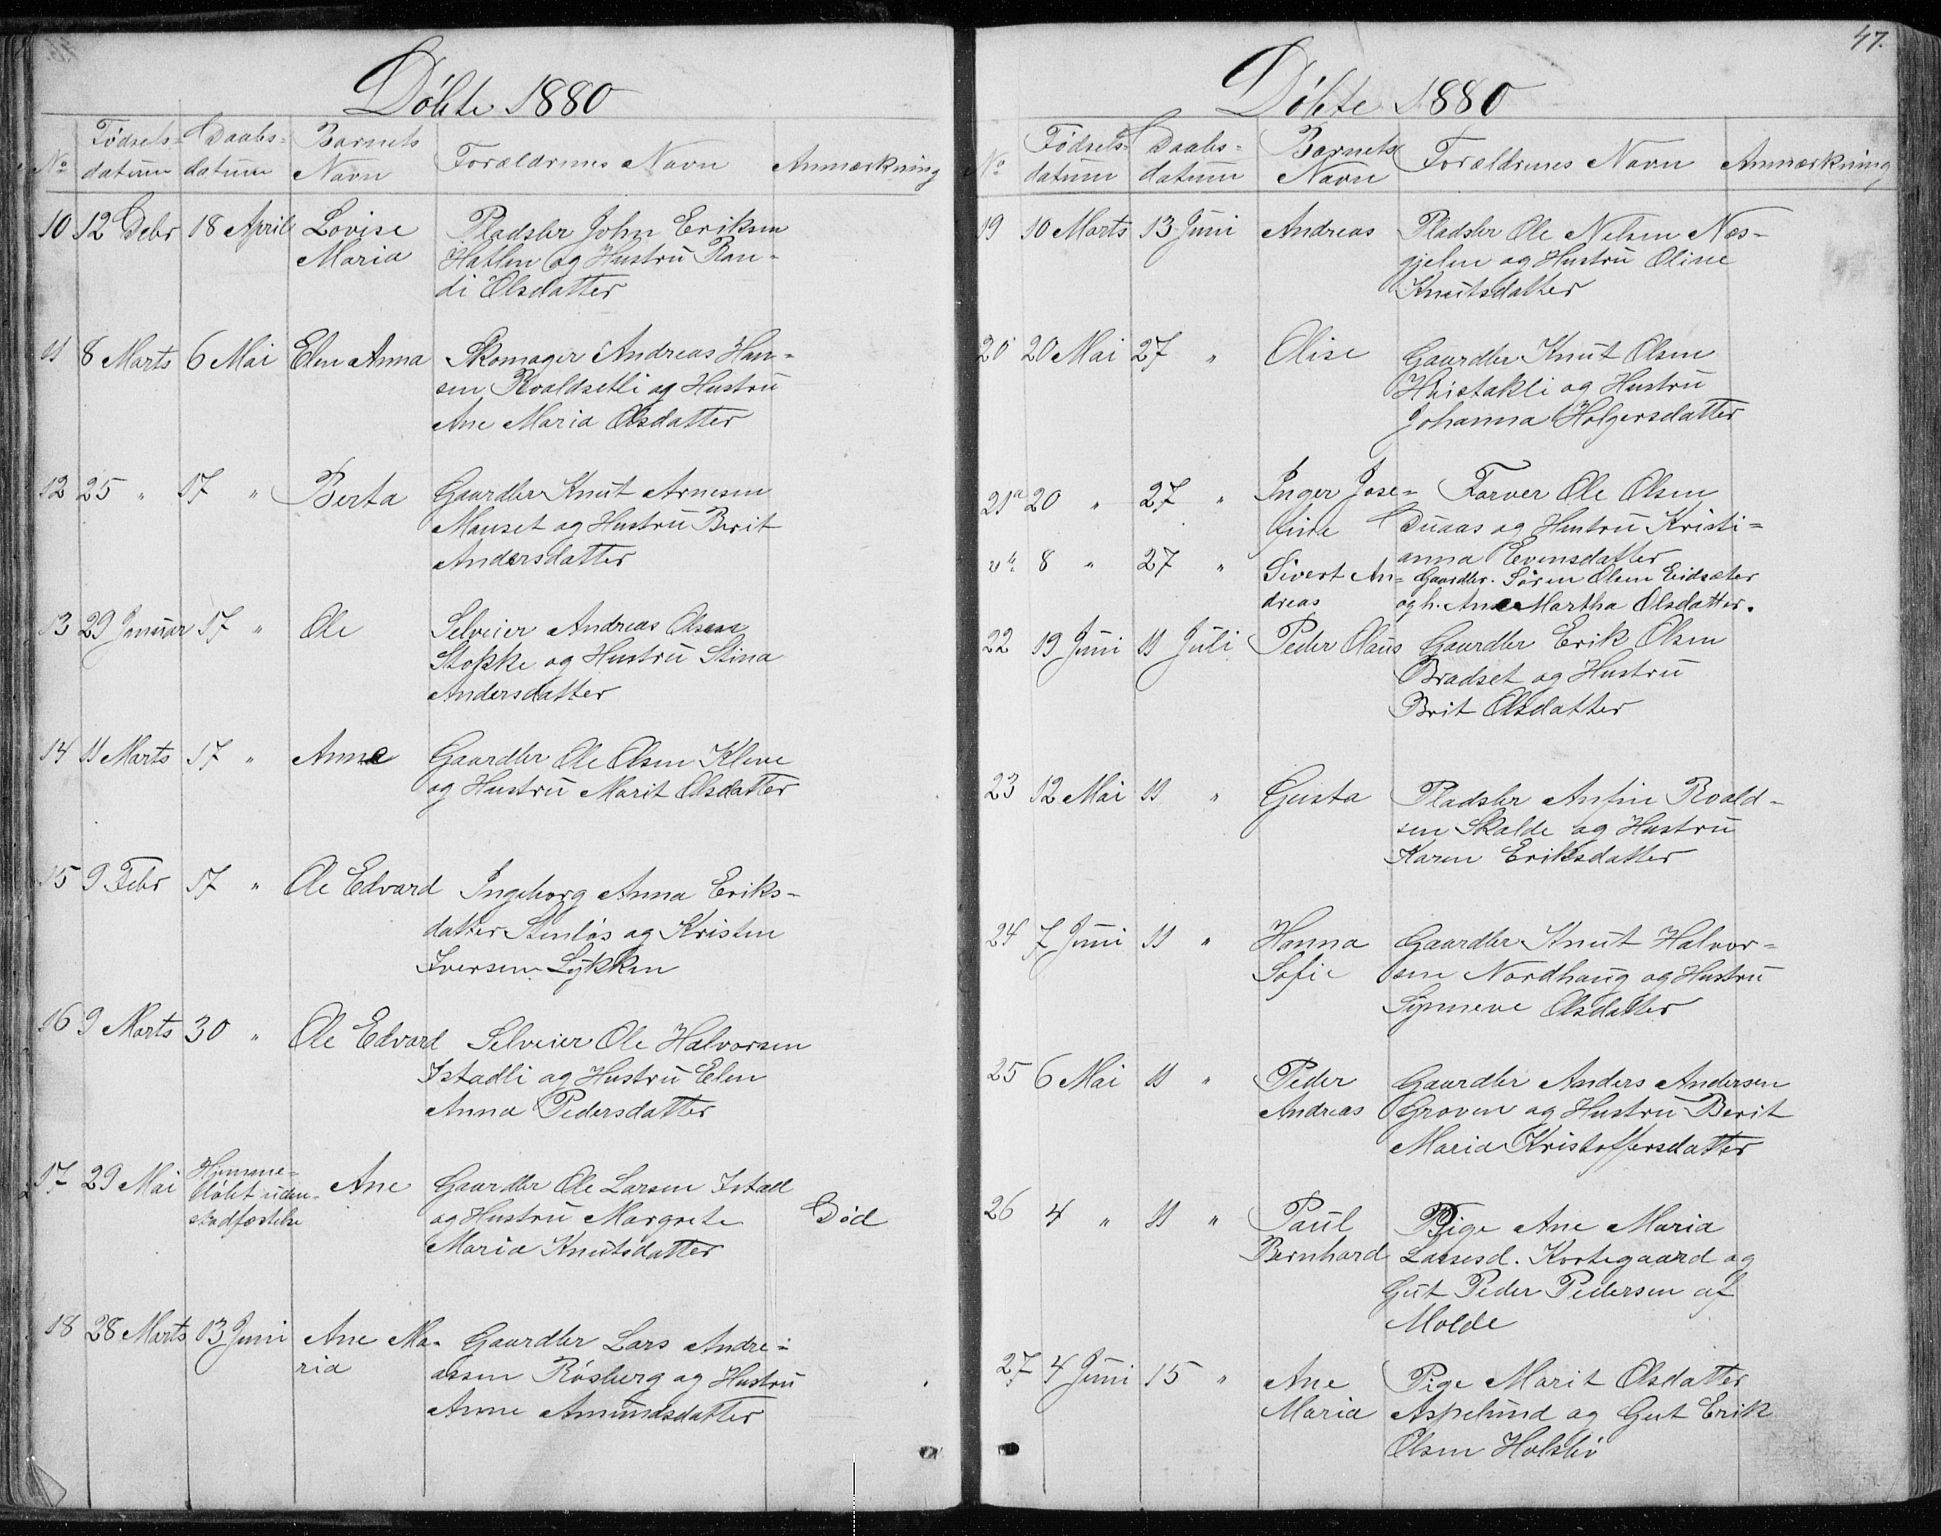 Døbte 1880
No Fødsels-datum Daabs-datum Barnets Navn Forældrenes Navn Anmærkning
10 12 Debr 18 April Lovise Pladsbr John Eriksen
Maria Hatlen og Hustru Ran-
di Olsdatter
11 8 Marts 6 Mai Elen Anna Skomager Andreas Han-
sen Roaldsetli og Hustru
Ane Maria Olsdatter
12 25 " 17 " Berta Gaardbr Knut Arnesen
Mauset og Hustru Berit
Andersdatter
13 29 Januar 17 " Ole Selveier Andreas Olsen
Stokke og Hustru Stina
Andersdatter
14 11 Marts 17 " Anne Gaardbr Ole Olsen Kleve
og Hustru Marit Olsdatter
15 9 Febr 17 " Ole Edvard Ingeborg Anna Eriks-
datter Stenløs og Kristen
Iversen Lykken
16 9 Marts 30 " Ole Edvard Selveier Ole Halvorsen
Istadli og Hustru Elen
Anna Pedersdatter
17 29 Mai Hjemme- Ane Gaardbr Ole Larsen Istad
døbt uden og Hustru Margrete Død
stadfæstelse Maria Knutsdatter
18 28 Marts 13 Juni Ane Ma- Gaardbr Lars Andre-
ria assen Røsberg og Hustru
Anne Amundsdatter
47.
Døbte 1880
No Fødsels-datum Daabs-datum Barnets Navn Forældrenes Navn Anmærkning
19 10 Marts 13 Juni Andreas Pladsbr Ole Nelsen Næs-
gjelen og Hustru Oline
Knutsdatter
20 20 Mai 27 " Olise Gaardbr Knut Olsen
Hristakli og Hustru
Johanna Holgersdatter
21a 20 " 27 " Inger Jose- Farver Ole Olsen
fine Duaas og Hustru Kristi-
anna Evensdatter
8 " 27 " Sivert An- Gaardbr. Søren Olsen Eidsæter
dreas og h. Ane Martha Olsdatter.
22 19 Juni 11 Juli Peder Olaus Gaardbr Erik Olsen
Bradset og Hustru
Brit Olsdatter
23 12 Mai 11 " Gusta Pladsbr Anfin Roald-
sen Skalde og Hustru
Karen Eriksdatter
24 7 Juni 11 " Hanna Gaardbr Knut Halvor-
Sofie sen Nordhaug og Hustru
Synneve Olsdatter
25 6 Mai 11 " Peder Gaardbr Anders Andersen
Andreas Groven og Hustru Berit
Maria Kristoffersdatter
26 4 " 11 " Paul Pige Ane Maria
Bernhard Lassesd. Kortegaard og
Gut Peder Pedersen af
Molde
27 4 Juni 15 " Ane Pige Marit Olsdatter
Maria Aspelund og Gut Erik
Olsen Holsbø